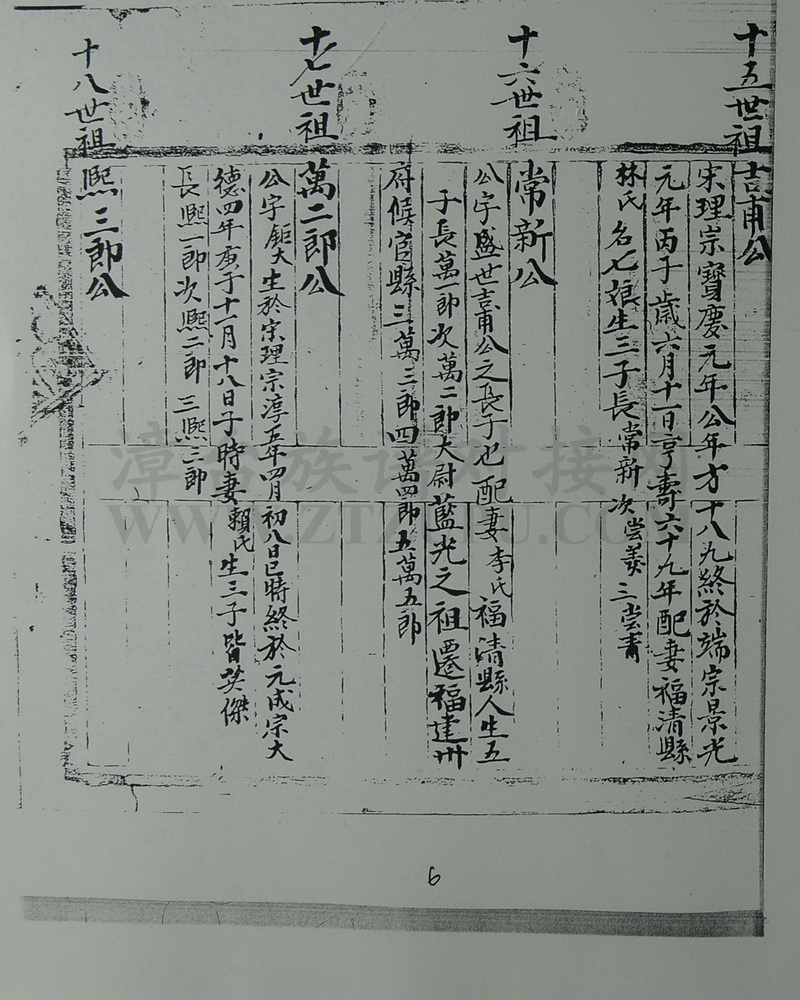 十五世祖
吉甫公
宋理宗寶慶元年公年才十八九終於端宗景光
元年丙子歲六月十一日亨壽六十九年配妻福清縣
林氏名七娘生三子長常新次尝美三尝青
十六世祖
常新公
公字盛世吉甫公之長子也配妻李氏福清縣人生五
子長萬一郎次萬二郎大尉藍光之祖遷福建卅
府候官縣三萬三郎四萬四郎五萬五郎
十七世祖
萬二郎公
公字鉅大生於宗理宗淳五年四月初八日巳時終於元成宗大
德四年庚子十一月十八日子時妻賴氏生三子皆英傑
長熙一郎次熙二郎三熙三郎
十八世祖
熙三郎公
6